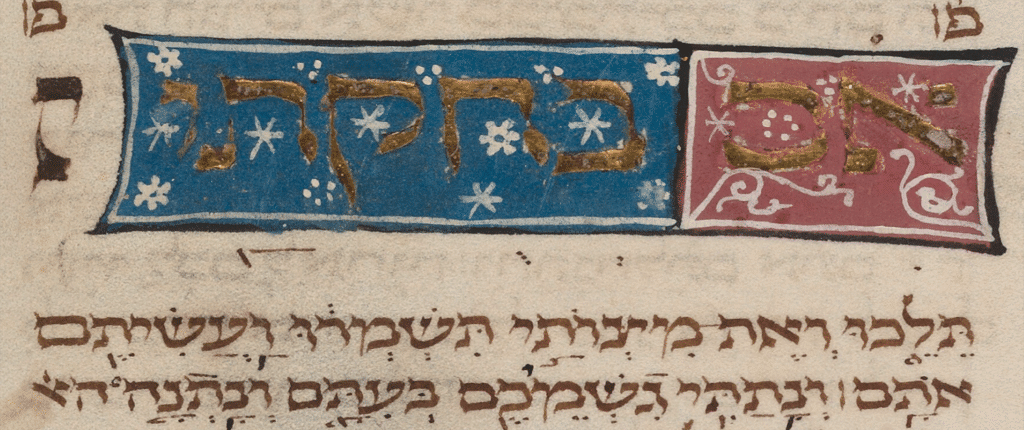 פ פ
אם בחקתי
תֵּלֵכוּ וְאֶת מִצְוֹתַי תִּשְׁמְרוּ וַעֲשִׂיתֶם
אֹתָם׃ וְנָתַתִּי גִשְׁמֵיכֶם בְּעִתָּם וְנָתְנָה הא